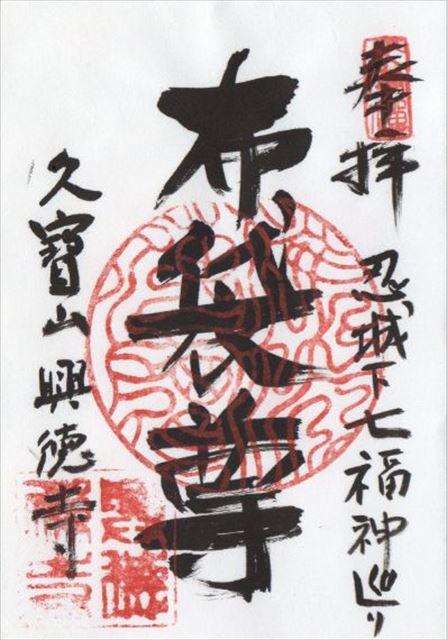 奉拝
忍城下七福神巡り
布袋尊
久寳山興徳寺